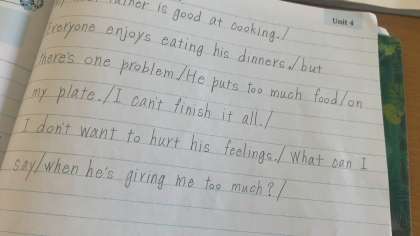 Unit 4
father is good at cooking./
Everyone enjoys eating his dinners./but
there's one problem./He puts too much food/on
my plate./I can't finish it all./
I don't want to hurt his feelings./What can I
say/when he's giving me too much?/